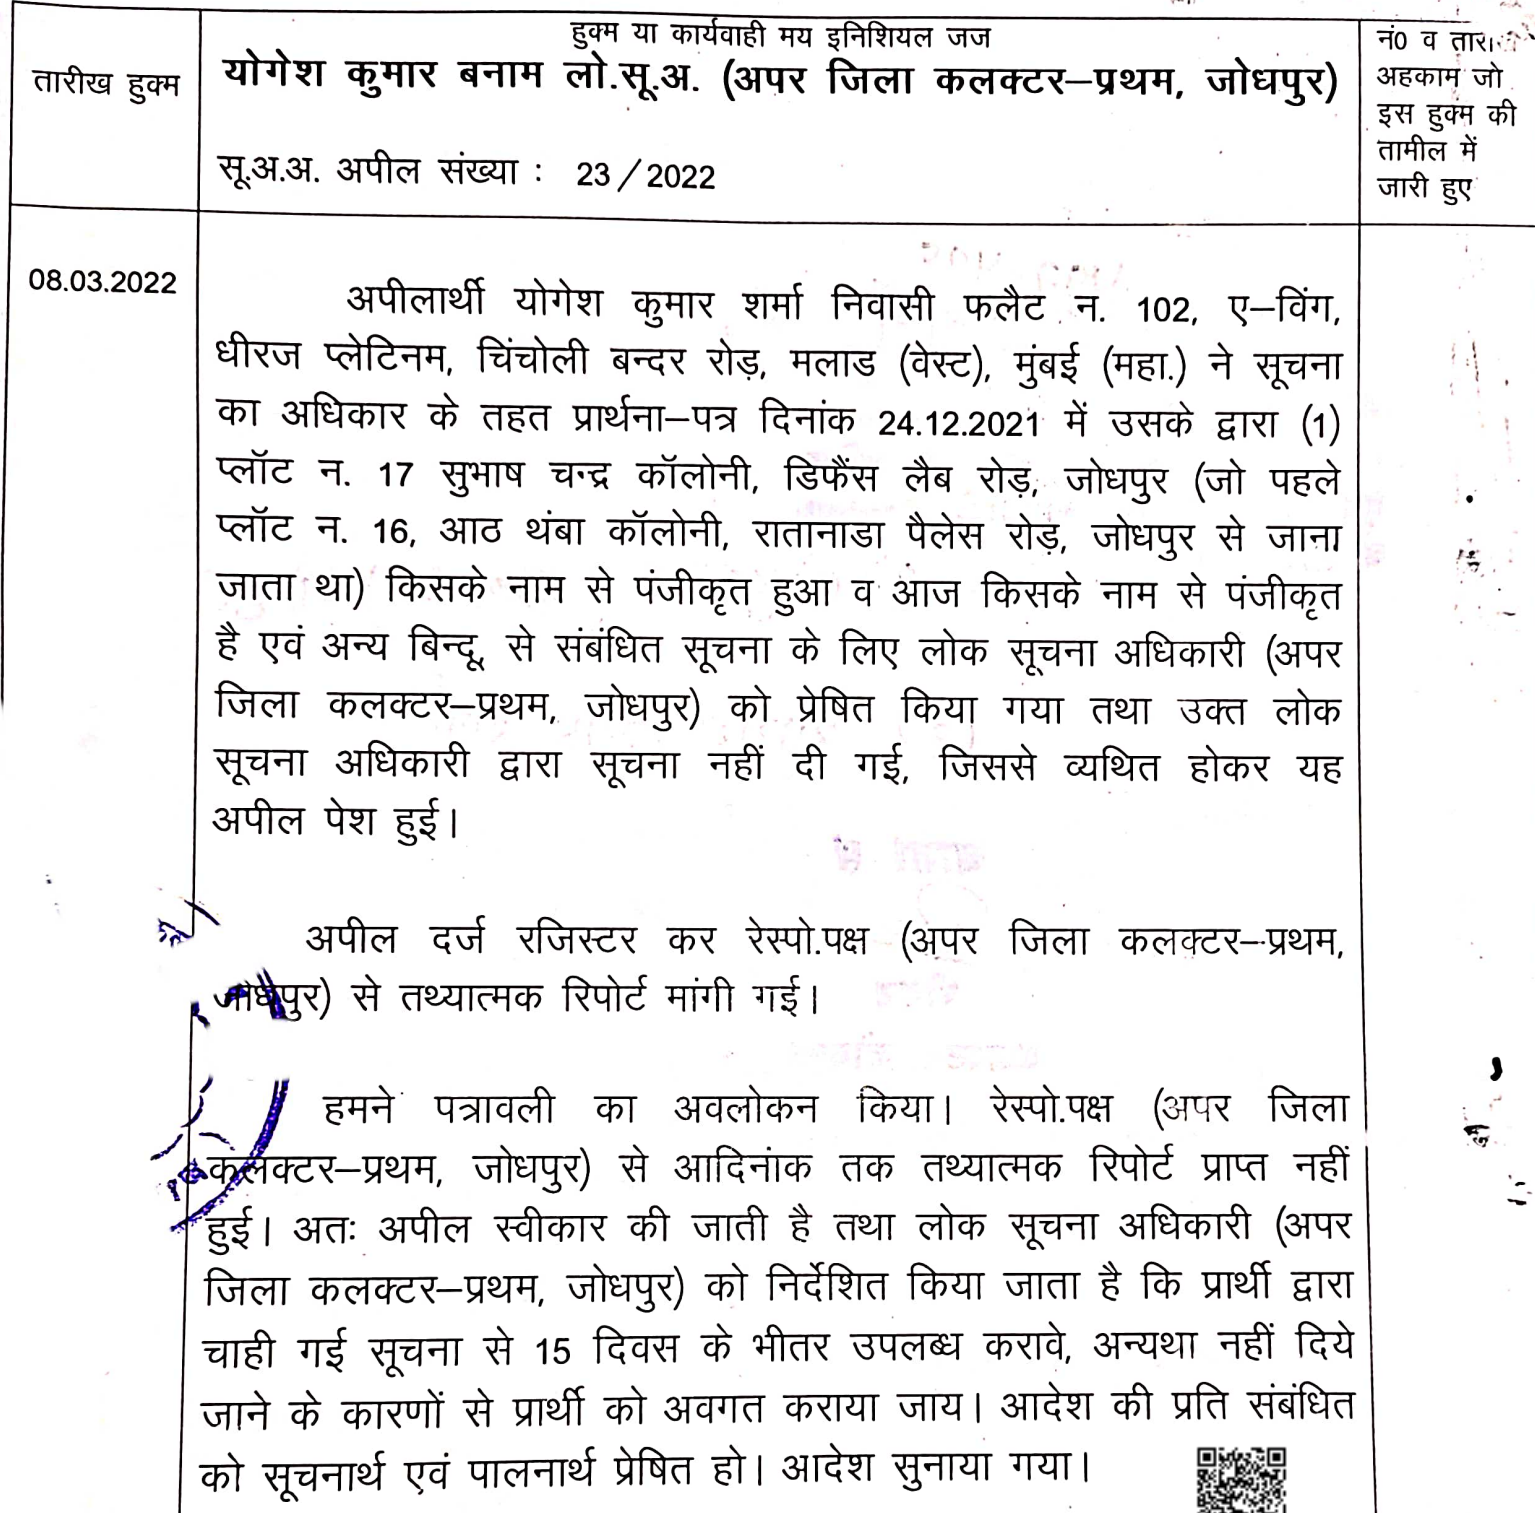 हुक्म या कार्यवाही मय इनिशियल जज
तारीख हुक्म
योगेश कुमार बनाम लो.सू.अ. (अपर जिला कलक्टर–प्रथम, जोधपुर)
सू.अ.अ. अपील संख्या : 23/2022
नं0 व
अहकाम जो
इस हुक्म की
तामील में
जारी हुए
08.03.2022
अपीलार्थी योगेश कुमार शर्मा निवासी फलैट न. 102, ए–विंग,
धीरज प्लेटिनम, चिंचोली बन्दर रोड़, मलाड (वेस्ट), मुंबई (महा.) ने सूचना
का अधिकार के तहत प्रार्थना–पत्र दिनांक 24.12.2021 में उसके द्वारा (1)
प्लॉट न. 17 सुभाष चन्द्र कॉलोनी, डिफैंस लैब रोड़, जोधपुर (जो पहले
प्लॉट न. 16, आठ थंबा कॉलोनी, रातानाडा पैलेस रोड़, जोधपुर से जाना
जाता था) किसके नाम से पंजीकृत हुआ व आज किसके नाम से पंजीकृत
है एवं अन्य बिन्दू से संबंधित सूचना के लिए लोक सूचना अधिकारी (अपर
जिला कलक्टर–प्रथम, जोधपुर) को प्रेषित किया गया तथा उक्त लोक
सूचना अधिकारी द्वारा सूचना नहीं दी गई, जिससे व्यथित होकर यह
अपील पेश हुई।
अपील दर्ज रजिस्टर कर रेस्पो.पक्ष (अपर जिला कलक्टर–प्रथम,
जोधपुर) से तथ्यात्मक रिपोर्ट मांगी गई।
हमने पत्रावली का अवलोकन किया। रेस्पो.पक्ष (अपर जिला
कलक्टर–प्रथम, जोधपुर) से आदिनांक तक तथ्यात्मक रिपोर्ट प्राप्त नहीं
हुई। अतः अपील स्वीकार की जाती है तथा लोक सूचना अधिकारी (अपर
जिला कलक्टर–प्रथम, जोधपुर) को निर्देशित किया जाता है कि प्रार्थी द्वारा
चाही गई सूचना से 15 दिवस के भीतर उपलब्ध करावे, अन्यथा नहीं दिये
जाने के कारणों से प्रार्थी को अवगत कराया जाय। आदेश की प्रति संबंधित
को सूचनार्थ एवं पालनार्थ प्रेषित हो। आदेश सुनाया गया।